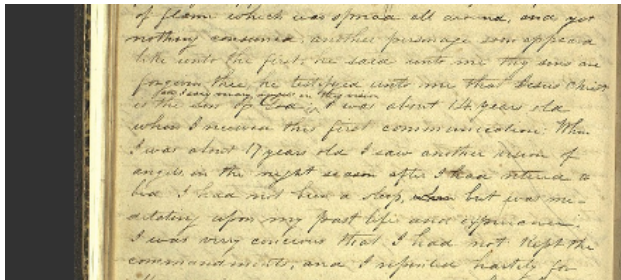 of flame which was spread all around, and yet
nothing consumed. another personage soon appeard
like unto the first: he said unto me thy sins are
forgiven thee, he testifyed unto me that Jesus Christ
is the son of God; I was about 14 years old
when I received this first communication; When
I was about 17 years old I saw another vision of
angels in the night season after I had retired to
bed I had not been a sleep, but was me-
ditating upon my past life and experience.
I was very concious that I had not kept the
commandments, and I repented hartily for